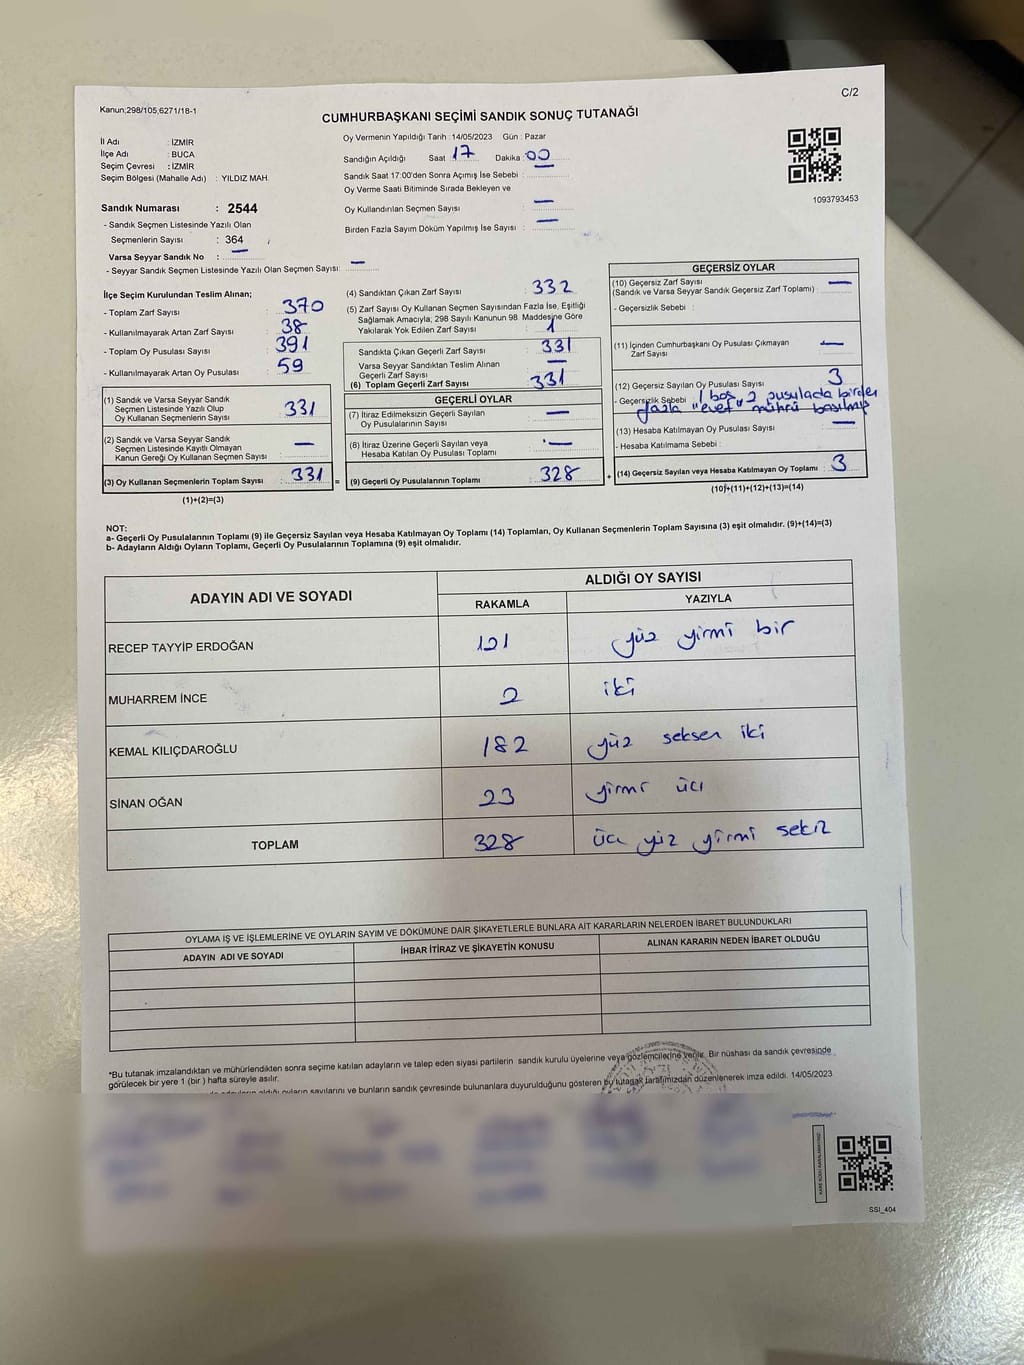 Kanun;298/105,6271/18-1
C/2
CUMHURBAŞKANI SEÇİMİ SANDIK SONUÇ TUTANAĞI
İl Adı : İZMİR
İlçe Adı : BUCA
Seçim Çevresi : İZMİR
Seçim Bölgesi (Mahalle Adı) : YILDIZ MAH.
Oy Vermenin Yapıldığı Tarih : 14/05/2023 Gün : Pazar
Sandığın Açıldığı Saat 17 Dakika 00
Sandık Saat 17:00'den Sonra Açımış İse Sebebi :
Oy Verme Saati Bitiminde Sırada Bekleyen ve
Oy Kullandırılan Seçmen Sayısı —
Birden Fazla Sayım Döküm Yapılmış İse Sayısı : —
1093793453
Sandık Numarası : 2544
- Sandık Seçmen Listesinde Yazılı Olan
Seçmenlerin Sayısı : 364
Varsa Seyyar Sandık No : —
- Seyyar Sandık Seçmen Listesinde Yazılı Olan Seçmen Sayısı: —
İlçe Seçim Kurulundan Teslim Alınan;
- Toplam Zarf Sayısı : 370
- Kullanılmayarak Artan Zarf Sayısı : 38
- Toplam Oy Pusulası Sayısı : 391
- Kullanılmayarak Artan Oy Pusulası : 59
(1) Sandık ve Varsa Seyyar Sandık
Seçmen Listesinde Yazılı Olup
Oy Kullanan Seçmenlerin Sayısı : 331
(2) Sandık ve Varsa Seyyar Sandık
Seçmen Listesinde Kayıtlı Olmayan
Kanun Gereği Oy Kullanan Seçmen Sayısı : —
(3) Oy Kullanan Seçmenlerin Toplam Sayısı : 331 =
(1)+(2)=(3)
(4) Sandıktan Çıkan Zarf Sayısı : 332
(5) Zarf Sayısı Oy Kullanan Seçmen Sayısından Fazla İse, Eşitliği
Sağlamak Amacıyla; 298 Sayılı Kanunun 98. Maddesine Göre
Yakılarak Yok Edilen Zarf Sayısı : 1
Sandıkta Çıkan Geçerli Zarf Sayısı : 331
Varsa Seyyar Sandıktan Teslim Alınan
Geçerli Zarf Sayısı : —
(6) Toplam Geçerli Zarf Sayısı : 331
GEÇERLİ OYLAR
(7) İtiraz Edilmeksizin Geçerli Sayılan
Oy Pusulalarının Sayısı : —
(8) İtiraz Üzerine Geçerli Sayılan veya
Hesaba Katılan Oy Pusulası Toplamı : —
(9) Geçerli Oy Pusulalarının Toplamı : 328 +
GEÇERSİZ OYLAR
(10) Geçersiz Zarf Sayısı
(Sandık ve Varsa Seyyar Sandık Geçersiz Zarf Toplamı) : —
- Geçersizlik Sebebi :
(11) İçinden Cumhurbaşkanı Oy Pusulası Çıkmayan
Zarf Sayısı : —
(12) Geçersiz Sayılan Oy Pusulası Sayısı : 3
- Geçersizlik Sebebi : 1 boş 2 pusulada birden
fazla "evet" mührü basılmış
(13) Hesaba Katılmayan Oy Pusulası Sayısı : —
- Hesaba Katılmama Sebebi :
(14) Geçersiz Sayılan veya Hesaba Katılmayan Oy Toplamı : 3
(10)+(11)+(12)+(13)=(14)
NOT:
a- Geçerli Oy Pusulalarının Toplamı (9) ile Geçersiz Sayılan veya Hesaba Katılmayan Oy Toplamı (14) Toplamları, Oy Kullanan Seçmenlerin Toplam Sayısına (3) eşit olmalıdır. (9)+(14)=(3)
b- Adayların Aldığı Oyların Toplamı, Geçerli Oy Pusulalarının Toplamına (9) eşit olmalıdır.
ADAYIN ADI VE SOYADI
ALDIĞI OY SAYISI
RAKAMLA YAZIYLA
RECEP TAYYİP ERDOĞAN 121 yüz yirmi bir
MUHARREM İNCE 2 iki
KEMAL KILIÇDAROĞLU 182 yüz seksen iki
SİNAN OĞAN 23 yirmi üç
TOPLAM 328 üç yüz yirmi sekiz
OYLAMA İŞ VE İŞLEMLERİNE VE OYLARIN SAYIM VE DÖKÜMÜNE DAİR ŞİKAYETLERLE BUNLARA AİT KARARLARIN NELERDEN İBARET BULUNDUKLARI
ADAYIN ADI VE SOYADI İHBAR İTİRAZ VE ŞİKAYETİN KONUSU ALINAN KARARIN NEDEN İBARET OLDUĞU
*Bu tutanak imzalandıktan ve mühürlendikten sonra seçime katılan adayların ve talep eden siyasi partilerin sandık kurulu üyelerine veya gözlemcilerine verilir. Bir nüshası da sandık çevresinde
görülecek bir yere 1 (bir ) hafta süreyle asılır.
aldığı oyların sayılarını ve bunların sandık çevresinde bulunanlara duyurulduğunu gösteren bu tutanak tarafımızdan düzenlenerek imza edildi. 14/05/2023
SSI_404